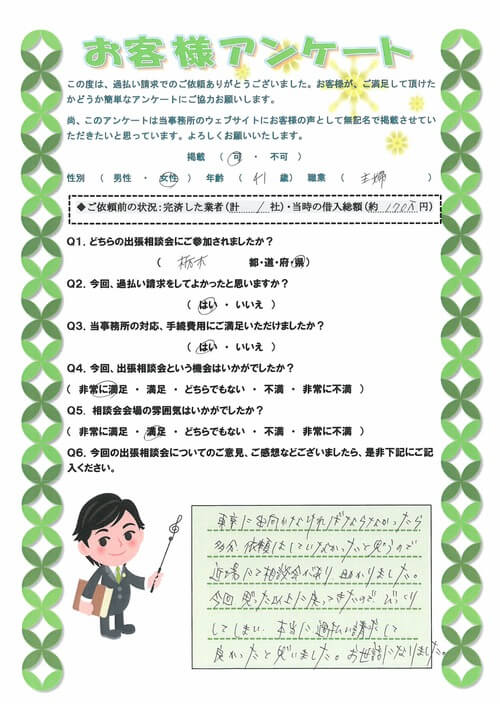 お客様アンケート
この度は、過払い請求でのご依頼ありがとうございました。お客様が、ご満足して頂けた
かどうか簡単なアンケートにご協力お願いします。
尚、このアンケートは当事務所のウェブサイトにお客様の声として無記名で掲載させてい
ただきたいと思っています。よろしくお願いいたします。
掲載 （ 可 ・ 不可 ）
性別 （ 男性 ・ 女性 ） 年齢 （ 41 歳） 職業 （ 主婦 ）
◆ご依頼前の状況：完済した業者（計 1 社）・当時の借入総額（約 170万 円）
Q1. どちらの出張相談会にご参加されましたか？
（ 栃木 都・道・府・県）
Q2. 今回、過払い請求をしてよかったと思いますか？
（ はい ・ いいえ ）
Q3. 当事務所の対応、手続費用にご満足いただけましたか？
（ はい ・ いいえ ）
Q4. 今回、出張相談会という機会はいかがでしたか？
（ 非常に満足 ・ 満足 ・ どちらでもない ・ 不満 ・ 非常に不満 ）
Q5. 相談会会場の雰囲気はいかがでしたか？
（ 非常に満足 ・ 満足 ・ どちらでもない ・ 不満 ・ 非常に不満 ）
Q6. 今回の出張相談会についてのご意見、ご感想などございましたら、是非下記にご記
入ください。
東京に出向かなければならなかったら
多分 依頼はしていなかったと思うので
近場にて相談会があり 助かりました。
今回 思った以上に戻ってきたので びっくり
してしまい 本当に 過払い請求して
良かったと思いました。お世話になりました。